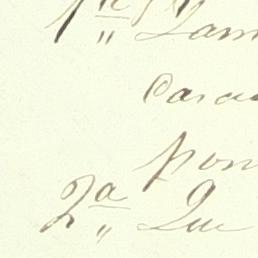 1ª Lam
Cara
pon
2ª Que